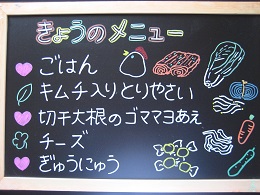 きょうのメニュー
ごはん
キムチ入りとりやさい
切干大根のゴママヨあえ
チーズ
ぎゅうにゅう